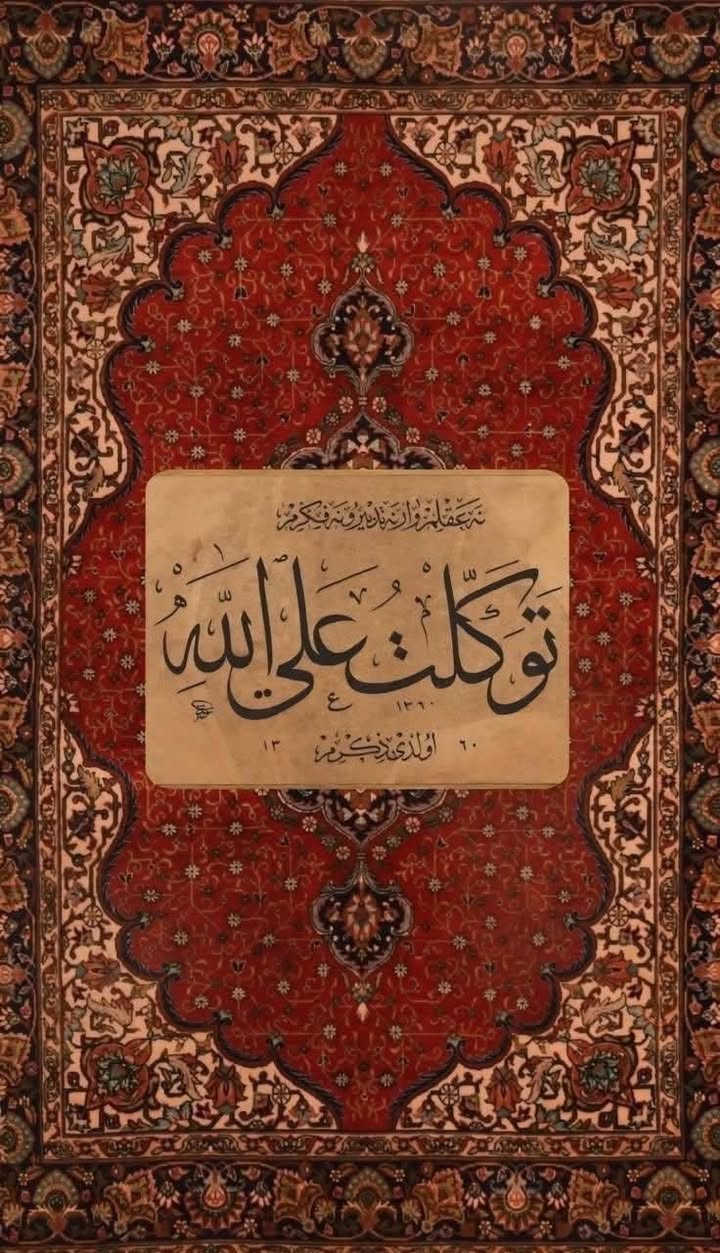 نه عقلم وار نه تدبير و نه فكرم
توكلت علي الله
١٣٦٠
١٣ اولدى ذكرم ٦٠